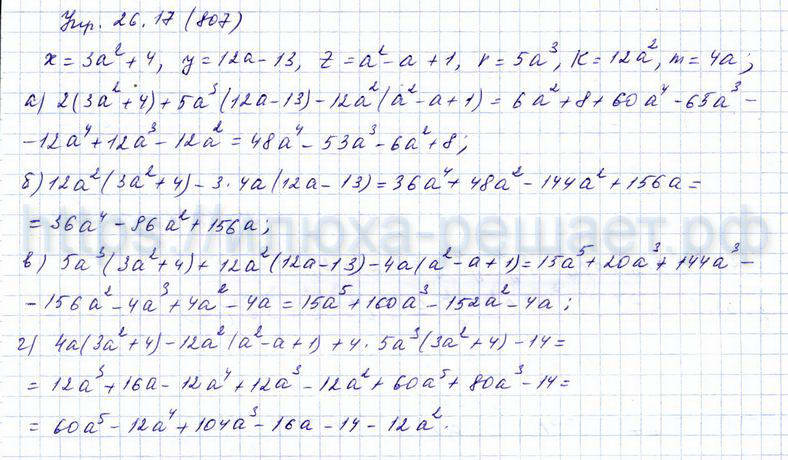 Упр. 26.17 (807)
x = 3a² + 4, y = 12a - 13, z = a² - a + 1, r = 5a³, K = 12a², m = 4a;
а) 2(3a² + 4) + 5a³(12a - 13) - 12a²(a² - a + 1) = 6a² + 8 + 60a⁴ - 65a³ -
- 12a⁴ + 12a³ - 12a² = 48a⁴ - 53a³ - 6a² + 8;
б) 12a²(3a² + 4) - 3 · 4a(12a - 13) = 36a⁴ + 48a² - 144a² + 156a =
= 36a⁴ - 96a² + 156a;
https://илюха-решает.рф
в) 5a³(3a² + 4) + 12a²(12a - 13) - 4a(a² - a + 1) = 15a⁵ + 20a³ + 144a³ -
- 156a² - 4a³ + 4a² - 4a = 15a⁵ + 160a³ - 152a² - 4a;
г) 4a(3a² + 4) - 12a²(a² - a + 1) + 4 · 5a³(3a² + 4) - 14 =
= 12a³ + 16a - 12a⁴ + 12a³ - 12a² + 60a⁵ + 80a³ - 14 =
= 60a⁵ - 12a⁴ + 104a³ - 16a - 14 - 12a².